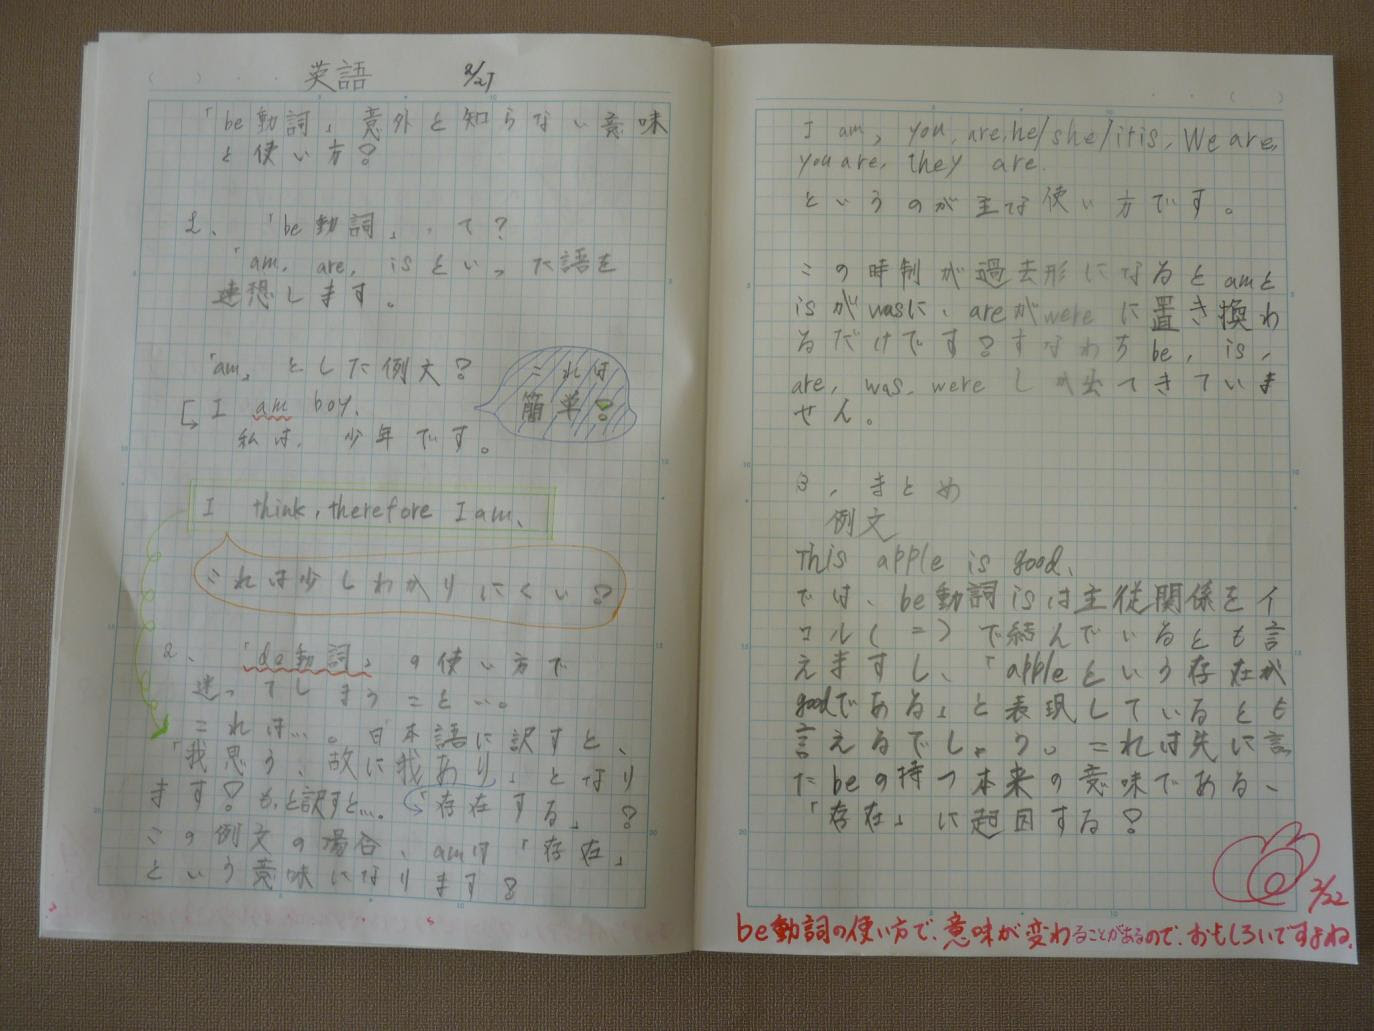 英語 2/21
「be動詞」意外と知らない意味
と使い方?
1、「be動詞」って?
「am, are, isといった語を
連想します。
「am」とした例文?
これは
簡単!
I am boy.
私は、少年です。
I think, therefore I am.
これは少しわかりにくい?
2、「de動詞」の使い方で
迷ってしまうこと…。
これは…。日本語に訳すと、
「我思う、故に我あり」となり
ます! もっと訳すと…。「存在する」?
この例文の場合、amは「存在」
という意味になります!
I am, you, are, he/she/it is, We are,
you are, they are.
というのが主な使い方です。
この時制が過去形になるとamと
isがwasに、areがwereに置き換わ
るだけです? すなわちbe, is,
are, was, were しか出てきていま
せん。
3, まとめ
例文
This apple is good.
では、be動詞isは主従関係をイ
コル(=)で結んでいるとも言
えますし、「appleという存在が
goodである」と表現しているとも
言えるでしょう。これは先に言っ
たbeの持つ本来の意味である、
「存在」に起因する?
2/22
be動詞の使い方で、意味が変わることがあるので、おもしろいですよね。